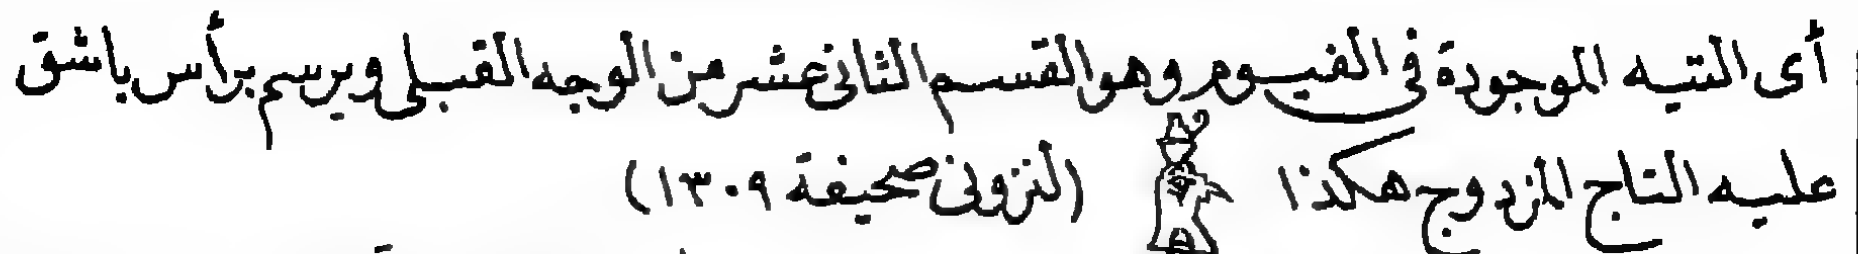 أى التيه الموجودة فى الفيوم وهو القسم الثانى عشر من الوجه القبلى ويرسم برأس باشق
عليه التاج المزدوج هكذا (لنزونى صحيفة ١٣٠٩)